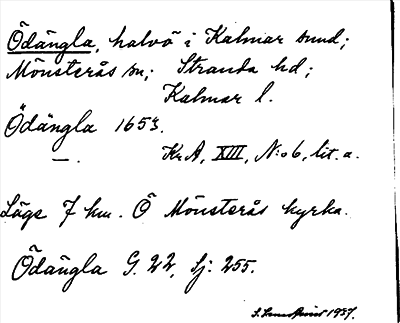 Ödängla, halvö i Kalmar sund;
Mönsterås sn; Stranda hd;
Kalmar l.
Ödängla 1653.
— . KrA, XIII, N:o 6, lit. a.
Läge 7 km. Ö Mönsterås kyrka.
Ödängla G. 22, Sj: 255.
1937.